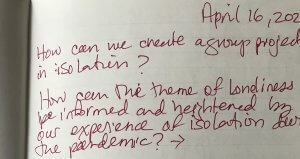 April 16, 202
How can we create a group project
in isolation?
How can the theme of loneliness
be informed and heightened by
our experience of isolation dur
the pandemic? →